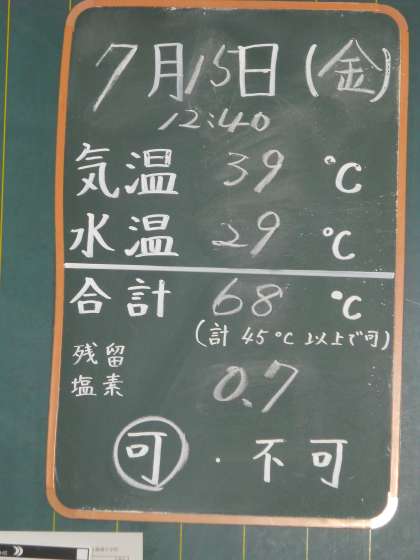 7月15日(金)
12:40
気温 39 ℃
水温 29 ℃
合計 68 ℃
(計 45℃ 以上で可)
残留
塩素 0.7
可 ・ 不可